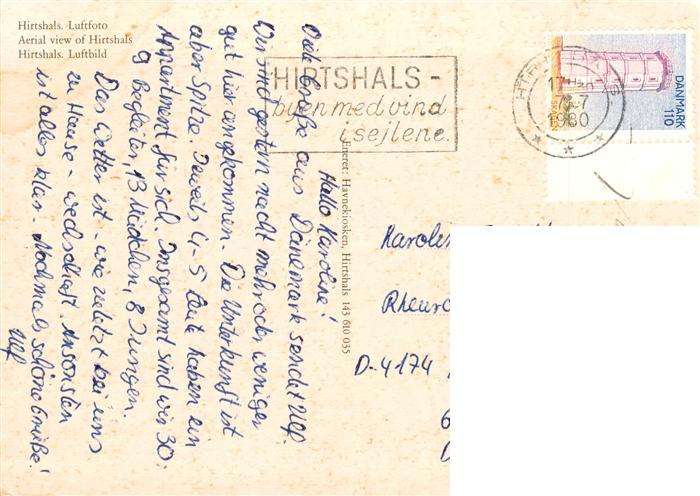 Hirtshals. Luftfoto
Aerial view of Hirtshals
Hirtshals. Luftbild
HIRTSHALS -
byen med vind
i sejlene.
17
1980
DANMARK
110
Eneret: Havnekiosken, Hirtshals 143 610 035
Hallo Karoline!
Viele Grüße aus Dänemark sendet Ulf.
Wir sind gestern nacht mehr oder weniger
gut hier angekommen. Die Unterkunft ist
aber Spitze. Jeweils 4-5 Leute haben ein
Appartment für sich. Insgesamt sind wir 30:
9 Begleiter, 13 Mädchen, 8 Jungen.
Das Wetter ist - wie zuletzt bei uns
zu Hause - wechselhaft. Ansonsten
ist alles klar. Nochmals schöne Grüße!
Ulf
Karolin
Rheur
D-4174